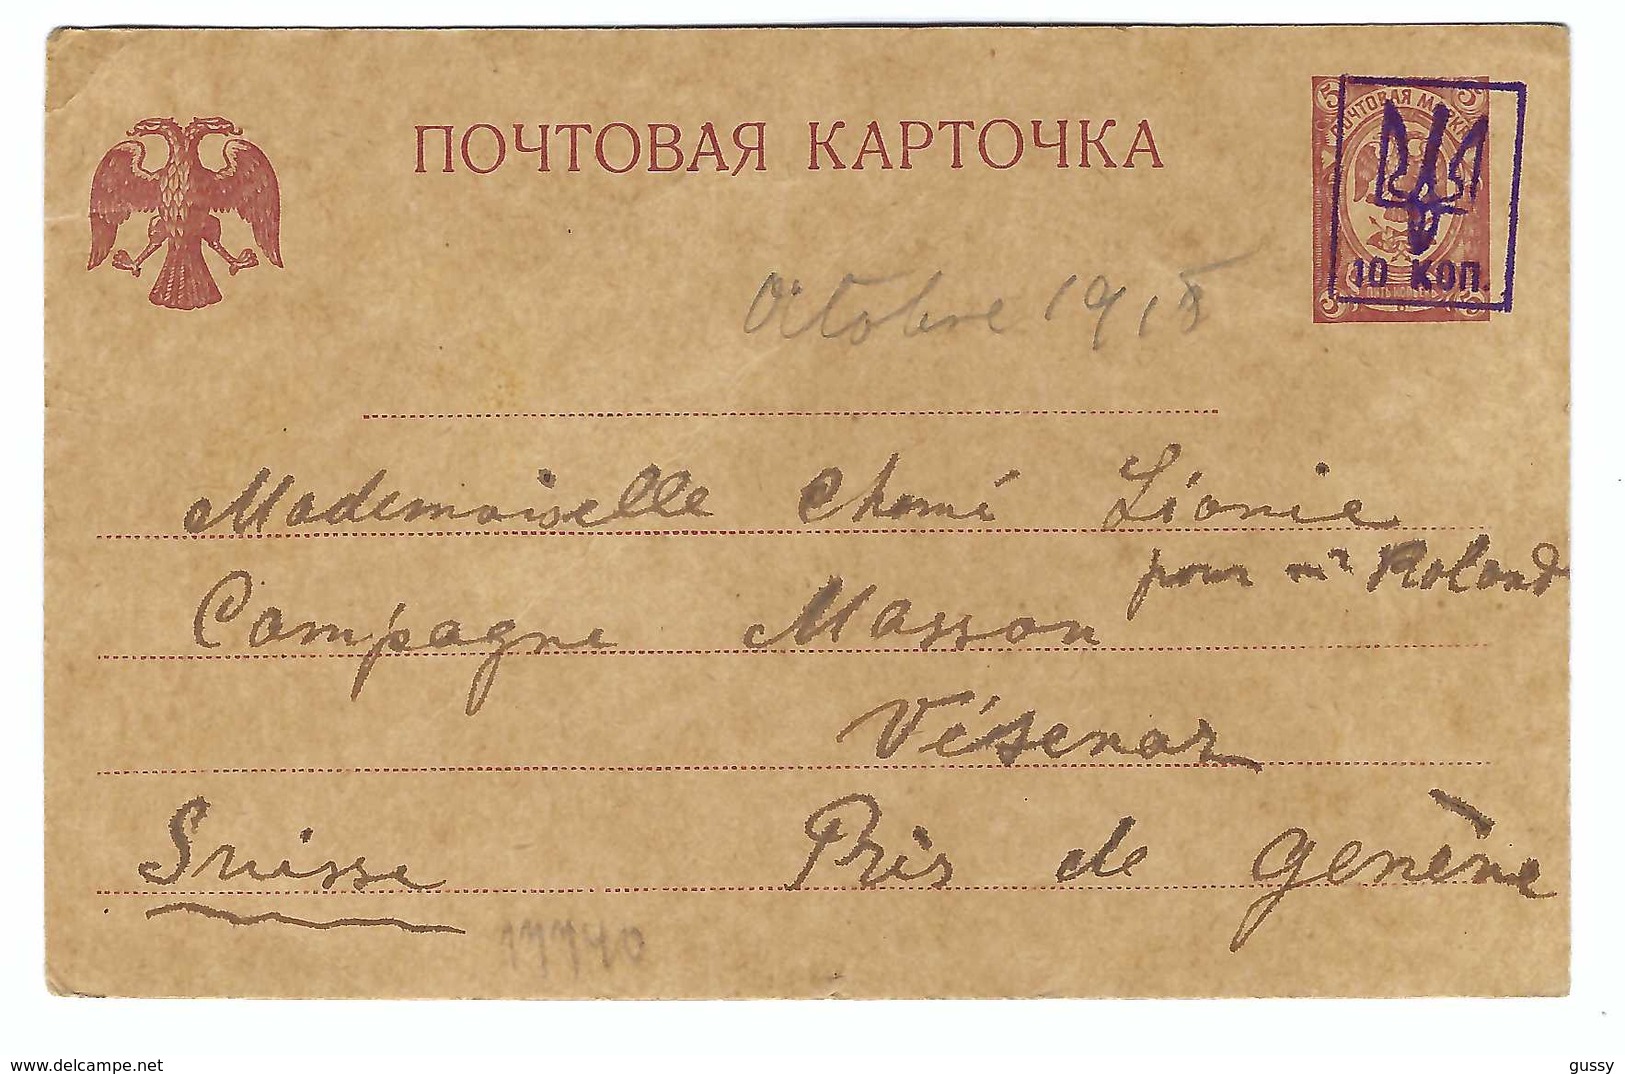 ПОЧТОВАЯ КАРТОЧКА
5 5
ПОЧТОВАЯ МАРКА
10 коп.
ПЯТЬ КОПѢЕКЪ
Octobre 1918
Mademoiselle Chomé Léonie
pour mr Roland
Campagne Masson
Vésenaz
Suisse Près de Genève
17740
www.delcampe.net
gussy